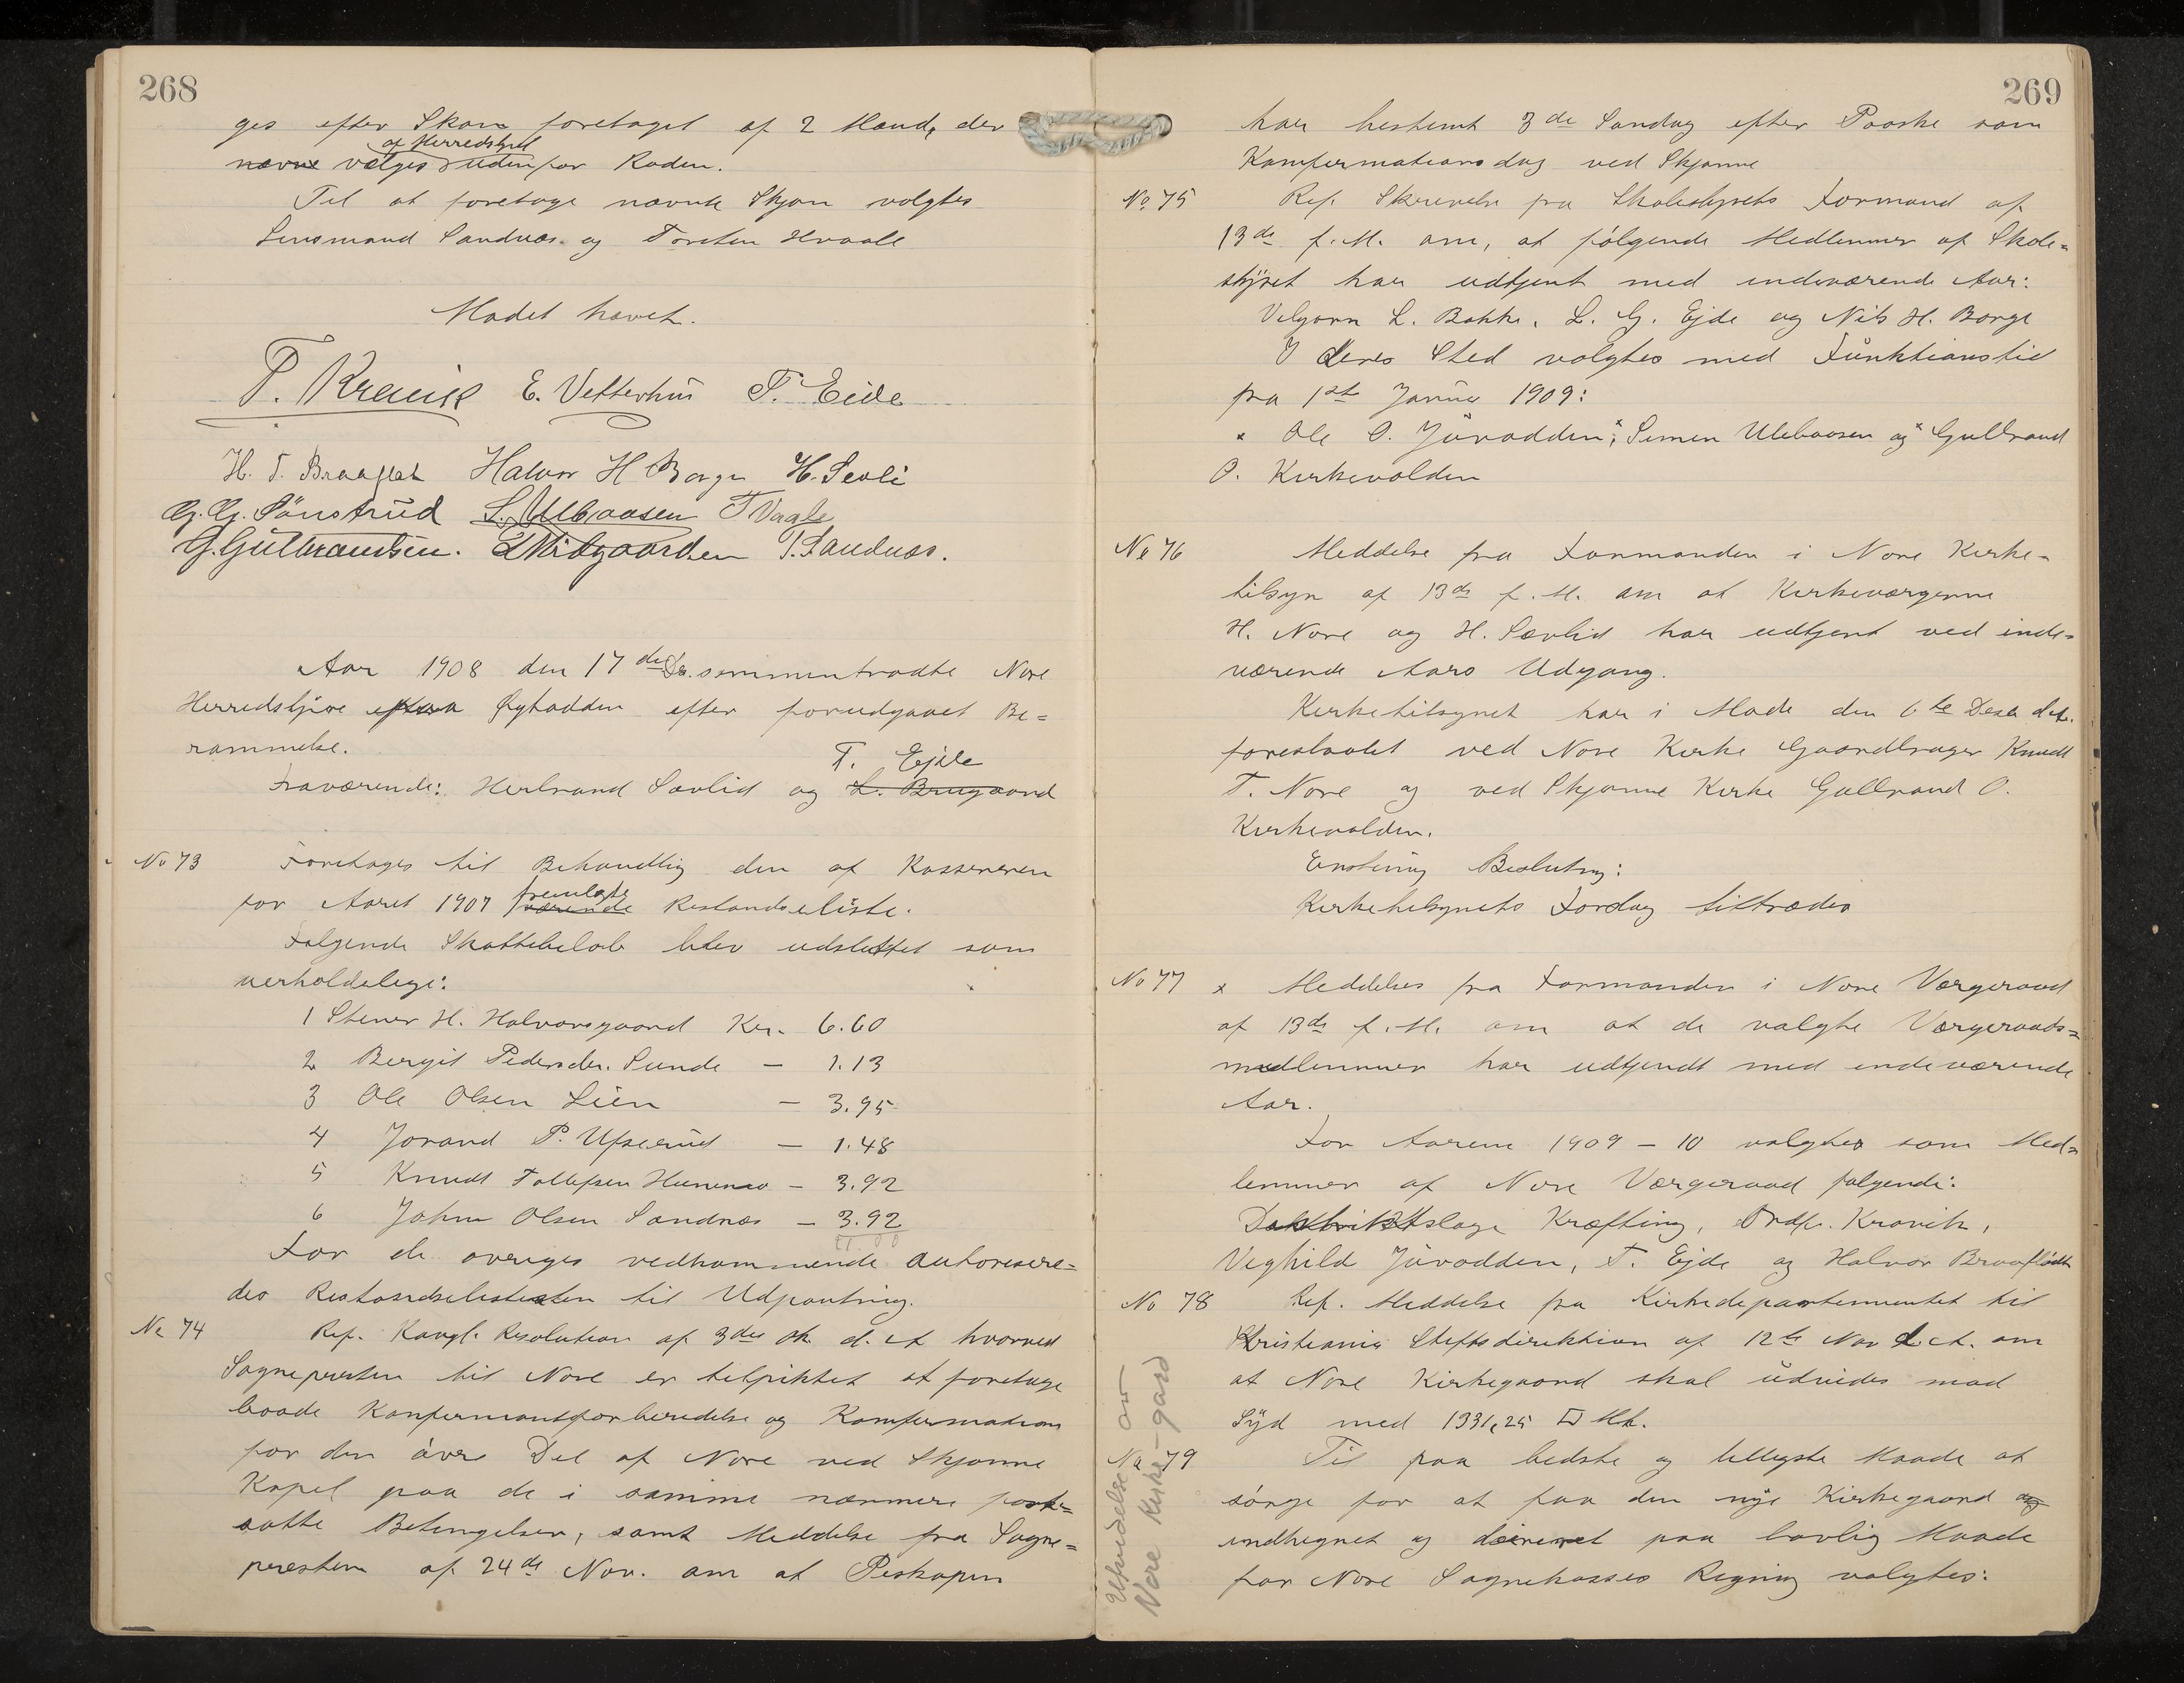 268
ges efter Skøn foretaget af 2 Mænd, der
af Herredstyret
nævne vælges udenfor Raden.
Til at foretage nævnte Skjøn valgtes
Lensmand Sandnæs og Torsten Hvaale
Mødet hævet.
T. Kravik E. Vetterhus T. Eide
H. T. Braaflat Halvor H Borge H. Sevli
G. G. Sönsterud S. Ulebaasen T Vaale
G. Gulbrandsen. E Midgaarden T. Sandnæs.
Aar 1908 den 17de Ds. sammentraadte Nore
Herredstyre paa Øygadden efter forudgaaet Be=
rammelse.
T. Ejde
Fraværende: Herbrand Sævlid og L. Brugaard
No 73 Foretages til Behandling den af Kassereren
fremlagte
for Aaret 1907 værende Restanceliste.
Følgende Skattebeløb blev udsluttet som
uerholdelige:
1 Stener H. Halvorsgaard Kr. 6.60
2 Bergit Pedersdr. Sunde — 1.13
3 Ole Olsen Lien — 3.95
4 Jorand P. Ufserud — 1.48
5 Knudt Tollefsen — 3.92
6 John Olsen Sandnæs — 3.92
For de øvriges vedkommende autorisere=
des Restanselisten til Udpantning.
No 74 Ref. Kongl. Resolution af 3die Ok. d. A hvorved
Sognepresten til Nore er tilpliktet at foretage
baade Konfermantforberedelse og Konfermation
for den övre Del af Nore ved Skjønne
Kapel paa de i samme nærmere fast=
satte Betingelser, samt Meddelse fra Sogne=
presten af 24de Nov. om at Biskopen
269
har bestemt 3de Søndag efter Paaske som
Konfermationsdag ved Skjønne
No 75 Ref. Skrivelse fra Skolestyrets Formand af
13de f. M. om, at følgende Medlemmer af Skole=
styret har udtjent med indeværende Aar:
Velgørn L. Bakke, L. G. Ejde og Nils H. Borge
I deres Sted valgtes med Funktionstid
fra 1ste Januar 1909:
x Ole O. Juvodden, x Simen Ulebaasen og x Gulbrand
O. Kirkevolden
No 76 Meddelse fra Formanden i Nore Kirke=
tilsyn af 13de f. M. om at Kirkeværgerne
H. Nore og H. Sævlid har udtjent ved inde=
værende Aars Udgang.
Kirketilsynet har i Møde den 6te Desbr d. A.
foreslaaet ved Nore Kirke Gaardbruger Knudt
T. Nore og ved Skjønne Kirke Gulbrand O.
Kirkevolden.
Enstemig Beslutning:
Kirketilsynets Forslag tiltrædes
No 77 x Meddelses fra Formanden i Nore Værgeraad
af 13de f. M. om at de valgte Værgeraads=
medlemmer har udtjendt med indeværende
Aar.
For Aarene 1909 - 10 valgtes som Med=
lemmer af Nore Værgeraad følgende:
Distriktslæge Kræfting, Ordfr. Kravik,
Veghild Juvodden, T. Ejde og Halvor Braaflådt
No 78 Ref. Meddelse fra Kirkedepartementet til
Kristiania Stiftsdirektion af 12te Nov d. A. om
at Nore Kirkegaard skal udvides mod
Syd med 1331,25 □ Mt.
No 79 Til paa bedste og billigste Maade at
sörge for at faa den nye Kirkegaard og
indhegnet og dreneret paa lovlig Maade
for Nore Sognekasses Regning valgtes:
Utvidelse av
Nore Kirke-gard